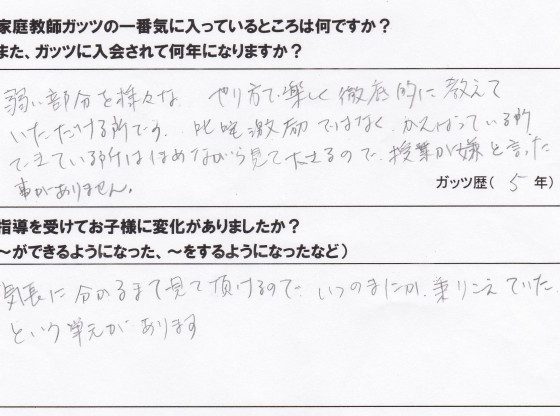 家庭教師ガッツの一番気に入っているところは何ですか？
また、ガッツに入会されて何年になりますか？
弱い部分を様々な やり方で楽しく徹底的に教えて
いただける所です。叱咤激励ではなく、がんばっている所
できている所はほめながら見て下さるので、授業が嫌と言った
事がありません。
ガッツ歴（ 5 年）
指導を受けてお子様に変化がありましたか？
～ができるようになった、～をするようになったなど）
気長に分かるまで見て頂けるので、いつのまにか、乗りこえていた
という単元があります